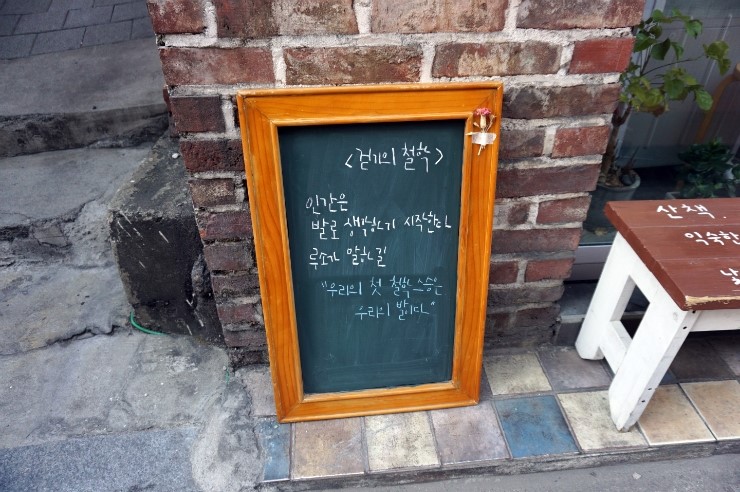 <걷기의 철학>
인간은
발로 생각하기 시작한다
루소가 말하길
"우리의 첫 철학 스승은
우리의 발이다."
산책.
익숙한
낯